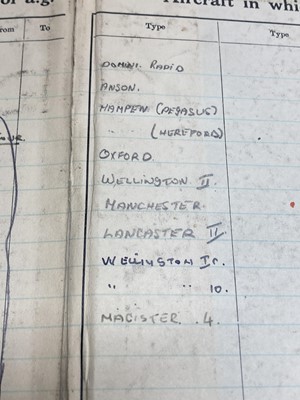 of a.g.
Aircraft in whi
From To
Type
Type
DOMINI. RADIO
ANSON.
HAMPEN (PEGASUS)
" (HEREFORD)
OXFORD.
WELLINGTON II.
MANCHESTER.
LANCASTER II.
WELLINGTON Ic.
" " 10.
MAGISTER .4.